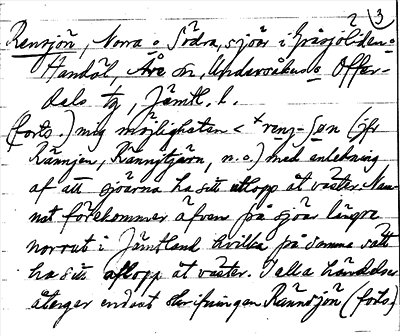 2 (3
Rensjön, Norra o Södra, sjöar i Gåsjöl den o
Handöl, Åre sn, Undersåkers o Offer-
dals tg, Jämtl. l.
(forts.) mig möjligheten < *renz-søn (jfr
Rännjen, Ränngtjärn, n.o.) med anledning
af att sjöarna ha sitt utlopp åt väster. Nam-
net förekommer äfven på sjöar längre
norrut i Jämtland hvilka på samma sätt
ha sitt aflopp åt väster. I alla händelser
återger endast skrifningen Rännsjön (forts.)